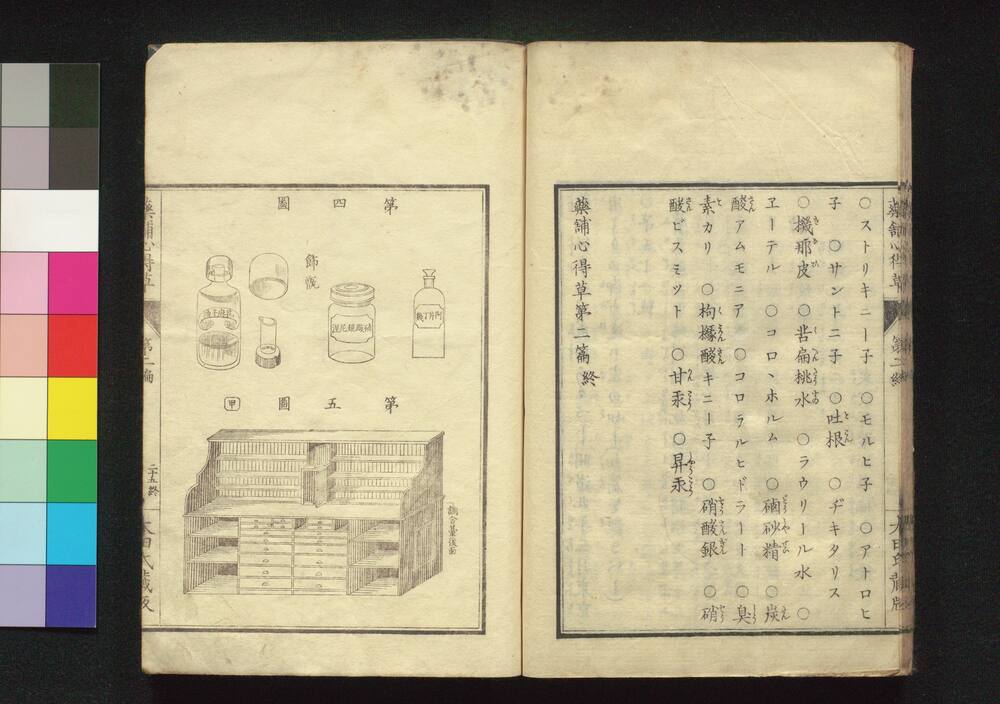 ○ストリキニー子 ○モルヒ子 ○アトロヒ
子 ○サントニ子 ○吐根 ○ヂキタリス
○機那皮 ○苦扁桃水 ○ラウリール水 ○
ヱーテル ○コロヽホルム ○磠砂精 ○炭
酸アムモニア ○コロラルヒドラート ○臭
素カリ ○枸櫞酸キニー子 ○硝酸銀 ○硝
酸ビスミット ○甘汞 ○昇汞
藥舗心得草第二篇終
第四圖
飾瓶
第五圖 甲
調合臺後面
藥舗心得草
第二編
二十五終